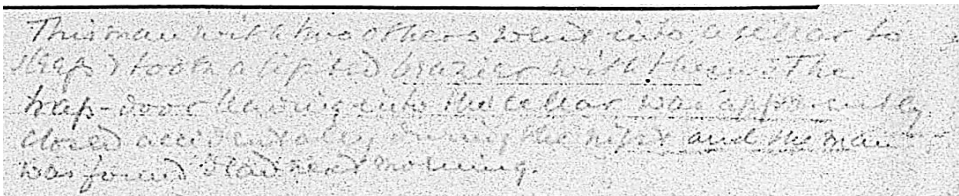 This man with two others went into a cellar to
sleep & took a lighted brazier with them. The
trap-door leading into the cellar was apparently
closed accidentally during the night and the man
was found dead next morning.